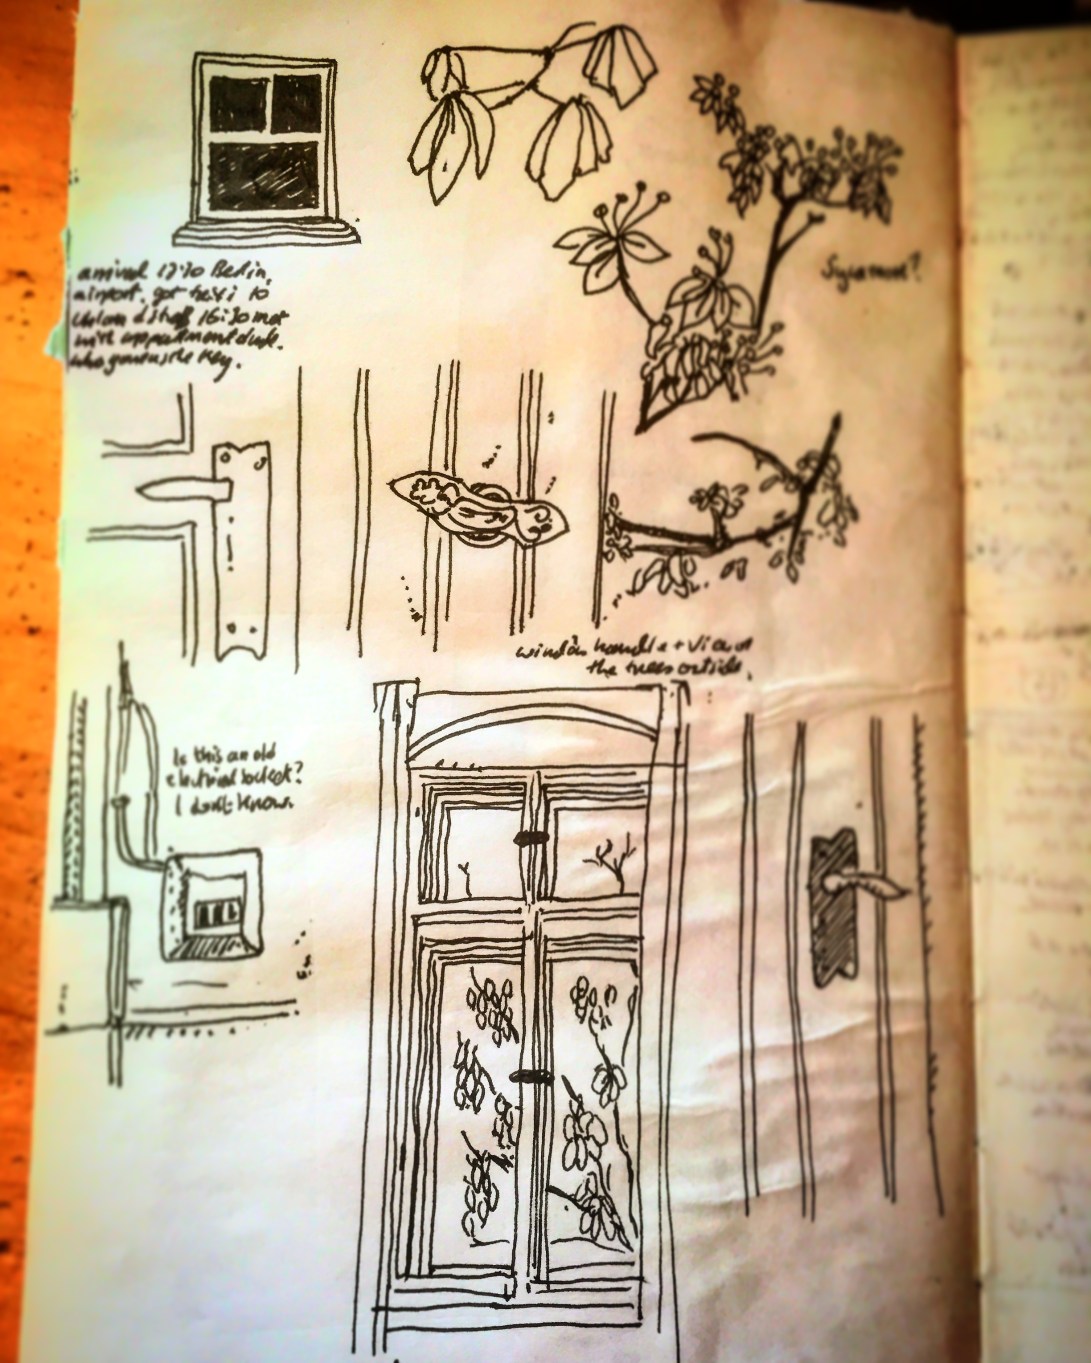 arrival 17:30 Berlin
airport. got taxi to
16:30 met
with appartment dude.
who gave us the key.
Sycamore?
window handle + view of
the trees outside.
Is this an old
electrical socket?
I don't know.